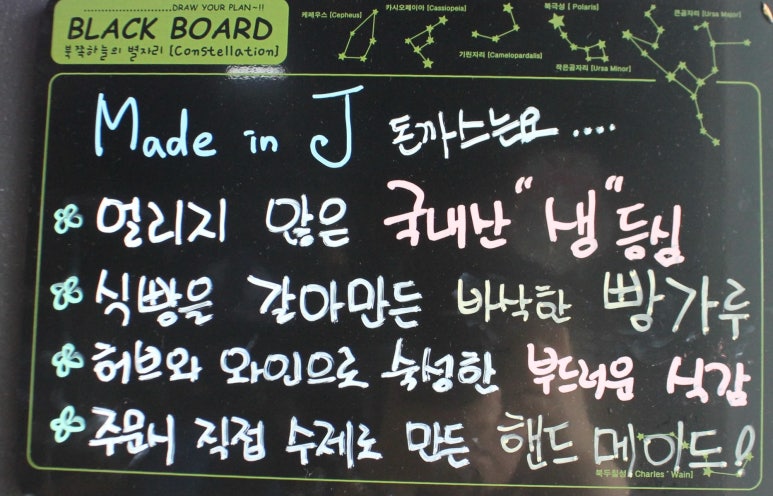 DRAW YOUR PLAN~!!
BLACK BOARD
북쪽하늘의 별자리 [Constellation]
케페우스 [Cepheus]
카시오페이아 [Cassiopeia]
기린자리 [Camelopardalis]
북극성 [ Polaris]
작은곰자리 [Ursa Minor]
큰곰자리 [Ursa Major]
Made in J 돈까스는요 ....
얼리지 않은 국내산 "생" 등심
식빵을 갈아만든 바삭한 빵가루
허브와 와인으로 숙성한 부드러운 식감
주문시 직접 수제로 만든 핸드메이드!
북두칠성 [ Charles' Wain]